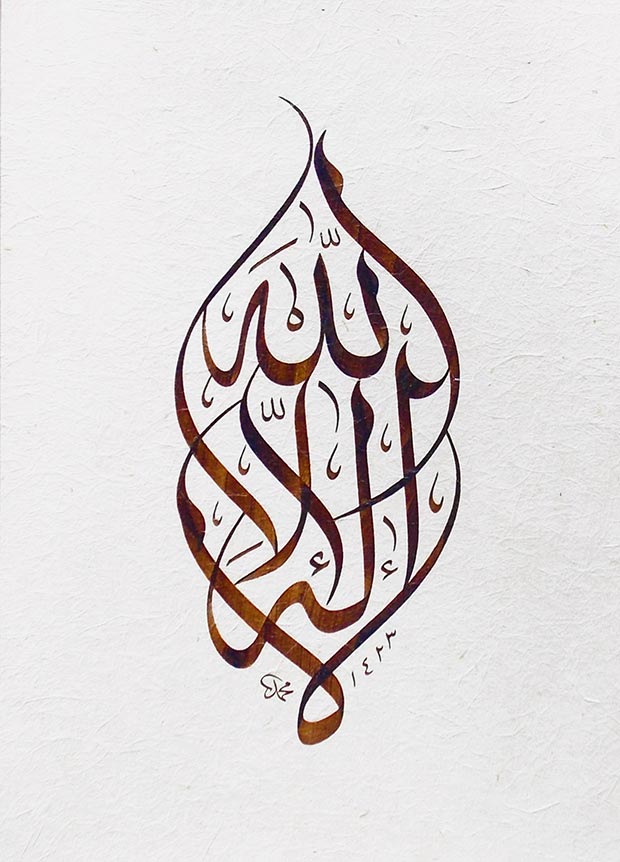 لا إلٰهَ إلّا اللّٰه
١٤٢٣